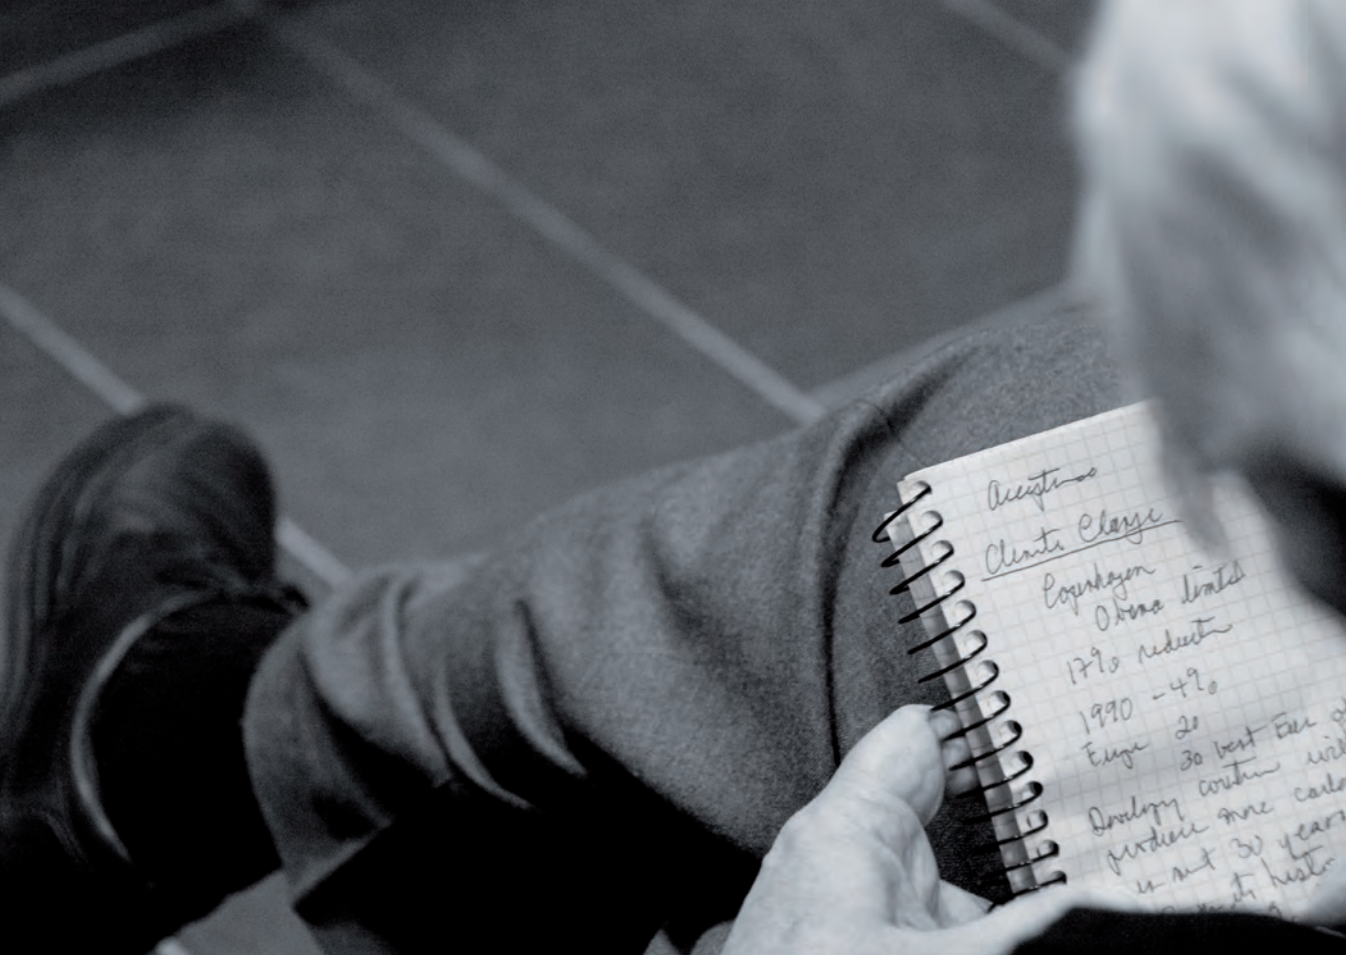 Climate Change
Copenhagen
Obama limited
17% reduction
1990 - 4%
Europe 20
30 best
Developing countries will
produce more carbo
in next 30 years